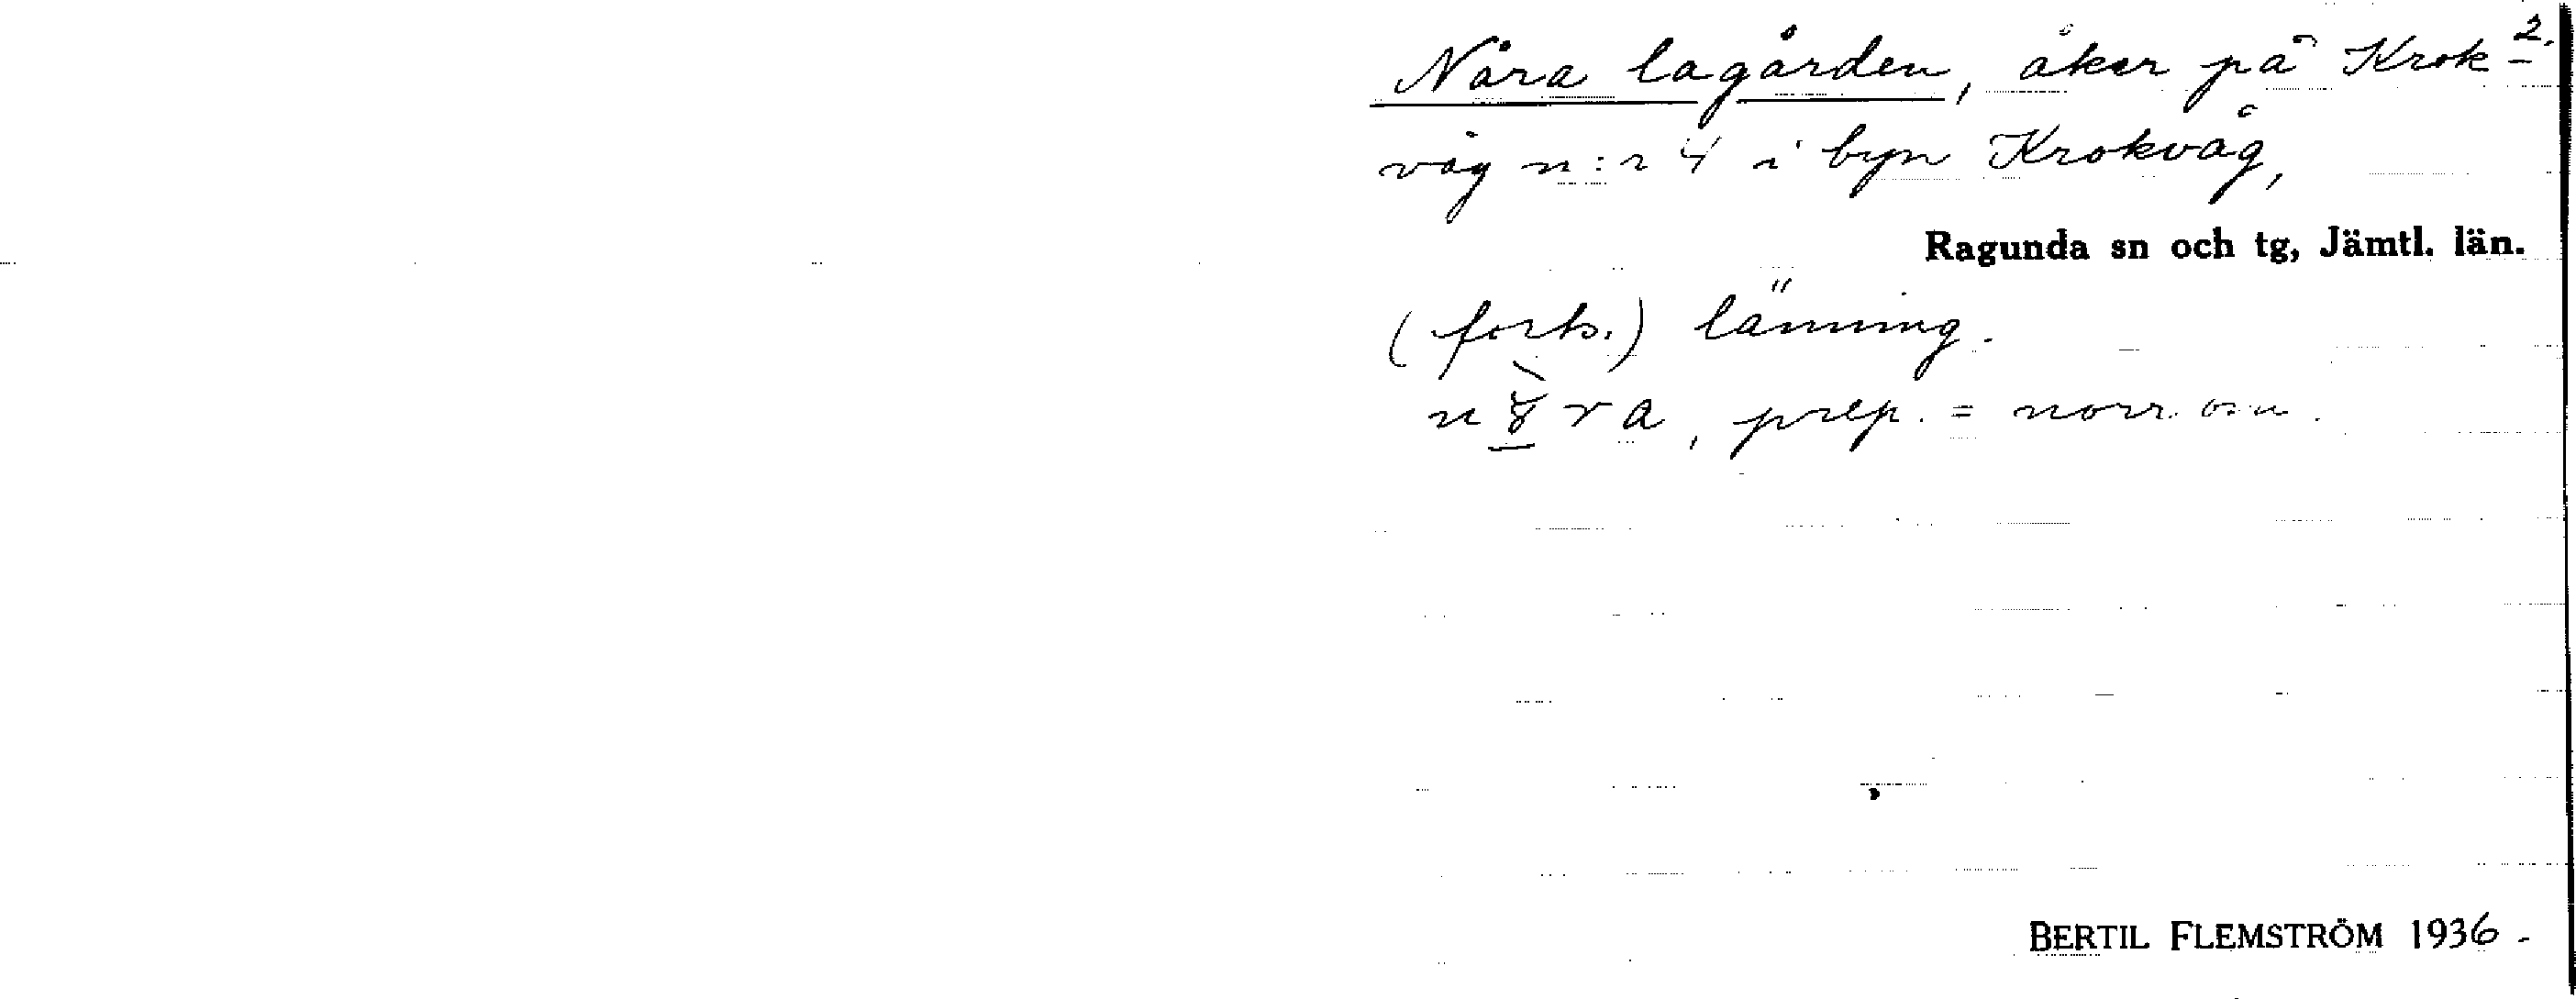 2.
Nåra lagården, åker på Krok-
våg n:r 4 i byn Krokvåg,
Ragunda sn och tg, Jämtl. län.
(forts.) länning.
prep. = norr om.
BERTIL FLEMSTRÖM 1936